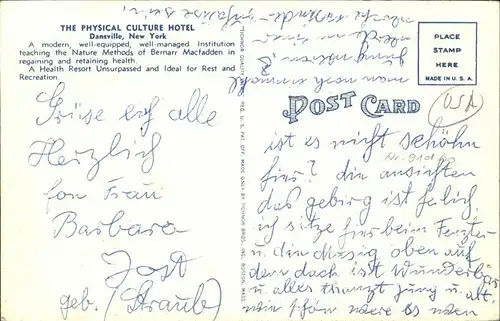 THE PHYSICAL CULTURE HOTEL
Dansville, New York
A modern, well-equipped, well-managed Institution
teaching the Nature Methods of Bernarr Macfadden in
regaining and retaining health.
A Health Resort Unsurpassed and Ideal for Rest and
Recreation.
PLACE
STAMP
HERE
MADE IN U.S.A.
POST CARD
USA
TICHNOR QUALITY REG. U.S. PAT. OFF. MADE ONLY BY TICHNOR BROS. INC. BOSTON, MASS.
Grüse euch alle
Herzlich
fon Frau
Barbara
Jost
geb. (Straub)
ist es nicht schöhn
hier? die ansichten
das gebirg ist
ich sitze hier beim Fenzter
u den Musig oben auf
dem dach ist Wunderbar
u alles thanzt jung u alt.
wie schön were es wen
man noch einmahl
jung